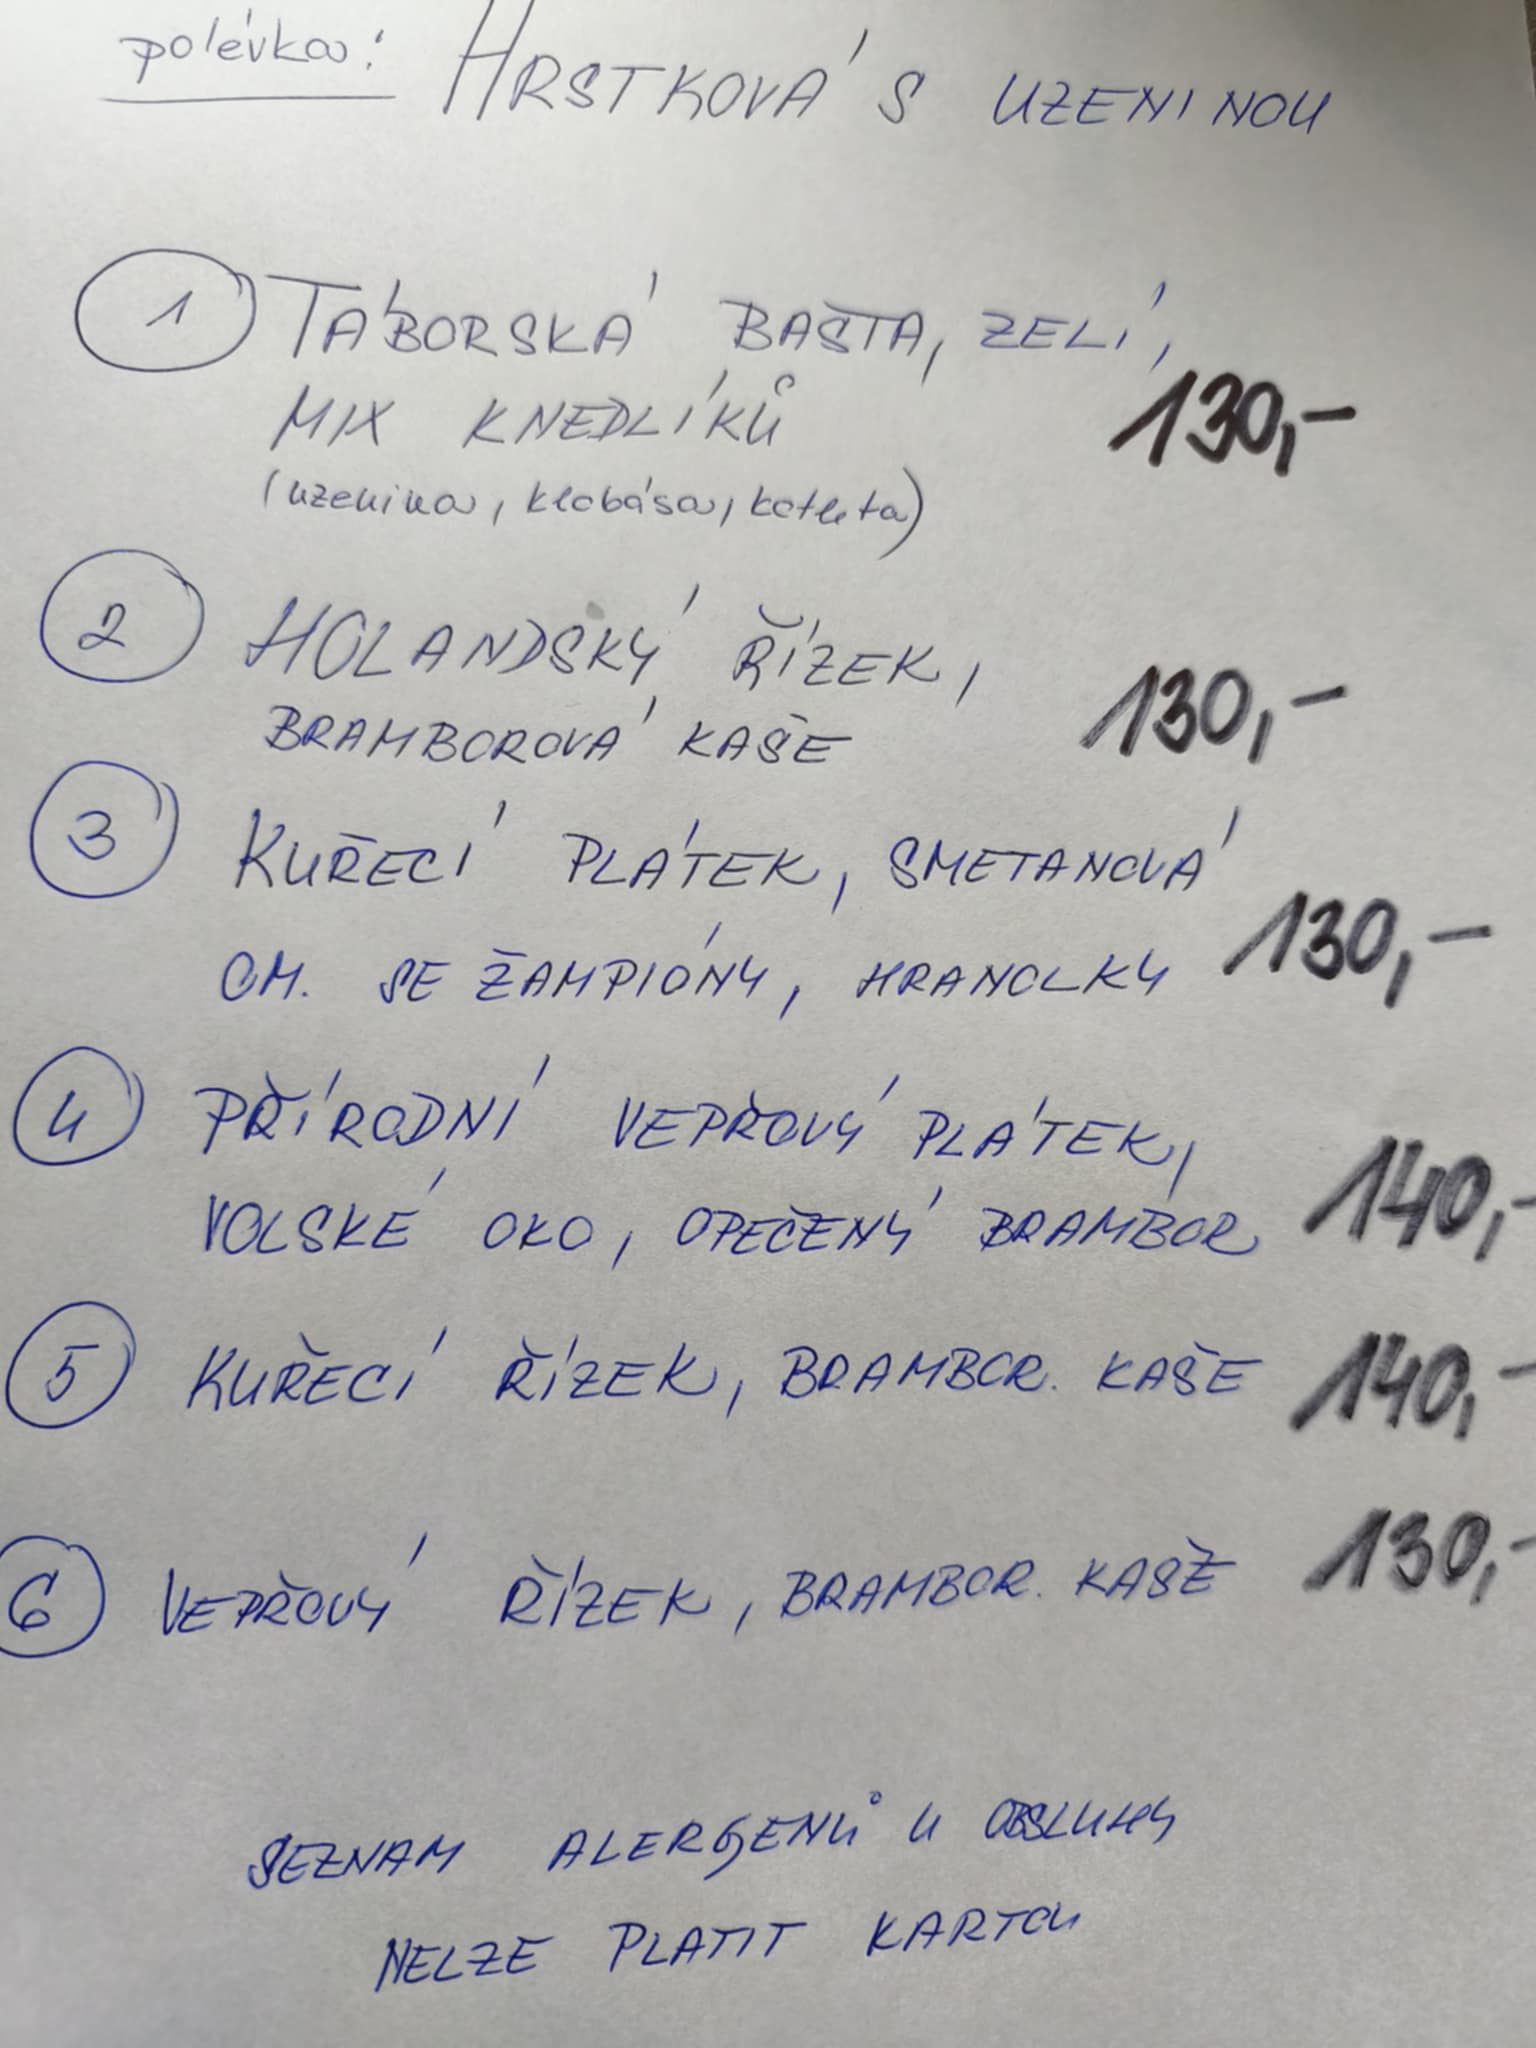 polévka: HRSTKOVÁ S UZENINOU
1 TÁBORSKÁ BAŠTA, ZELÍ,
MIX KNEDLÍKŮ 130,-
(uzenina, klobása, kotleta)
2 HOLANDSKÝ ŘÍZEK,
BRAMBOROVÁ KAŠE 130,-
3 KUŘECÍ PLÁTEK, SMETANOVÁ
OM. SE ŽAMPIÓNY, HRANOLKY 130,-
4 PŘÍRODNÍ VEPŘOVÝ PLÁTEK,
VOLSKÉ OKO, OPEČENÝ BRAMBOR 140,-
5 KUŘECÍ ŘÍZEK, BRAMBOR. KAŠE 140,-
6 VEPŘOVÝ ŘÍZEK, BRAMBOR. KAŠE 130,-
SEZNAM ALERGENŮ U OBSLUHY
NELZE PLATIT KARTOU